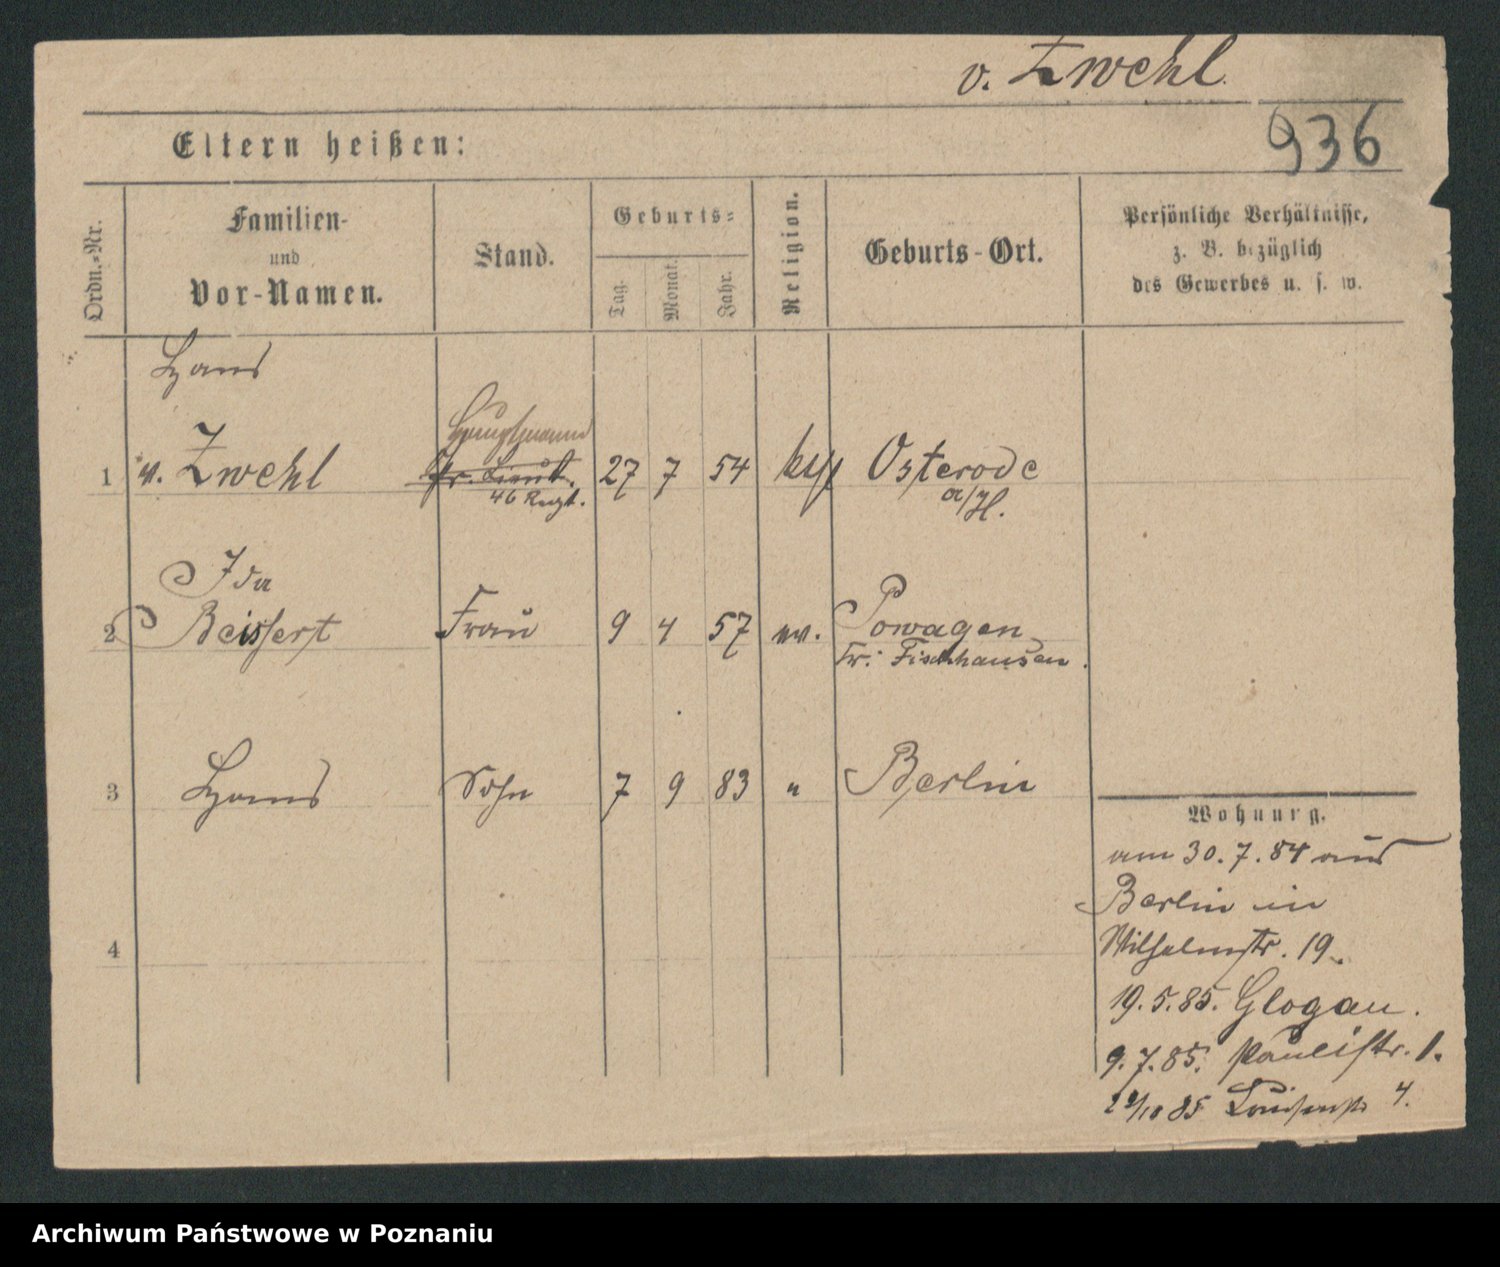 v. Zwehl.
936
Eltern heißen:
Ordn.-Nr.
Familien-
und
Vor-Namen.
Stand.
Geburts-
Tag.
Monat.
Jahr.
Religion.
Geburts-Ort.
Persönliche Verhältnisse,
z. B. bezüglich
des Gewerbes u. s. w.
Hans
Hauptmann
1 v. Zwehl Pr. Lieut. 27 7 54 Osterode
46 Regt. a/H.
Ida
2 Beissert Frau 9 4 57 ev. Powagen
Kr. Fischhausen.
3 Hans Sohn 7 9 83 " Berlin
4
Wohnung.
am 30.7.84 aus
Berlin in
Wilhelmstr. 19.
19.5.85. Glogau.
9.7.85. Paulistr. 1.
29/10 85 Louisenstr 4.
Archiwum Państwowe w Poznaniu